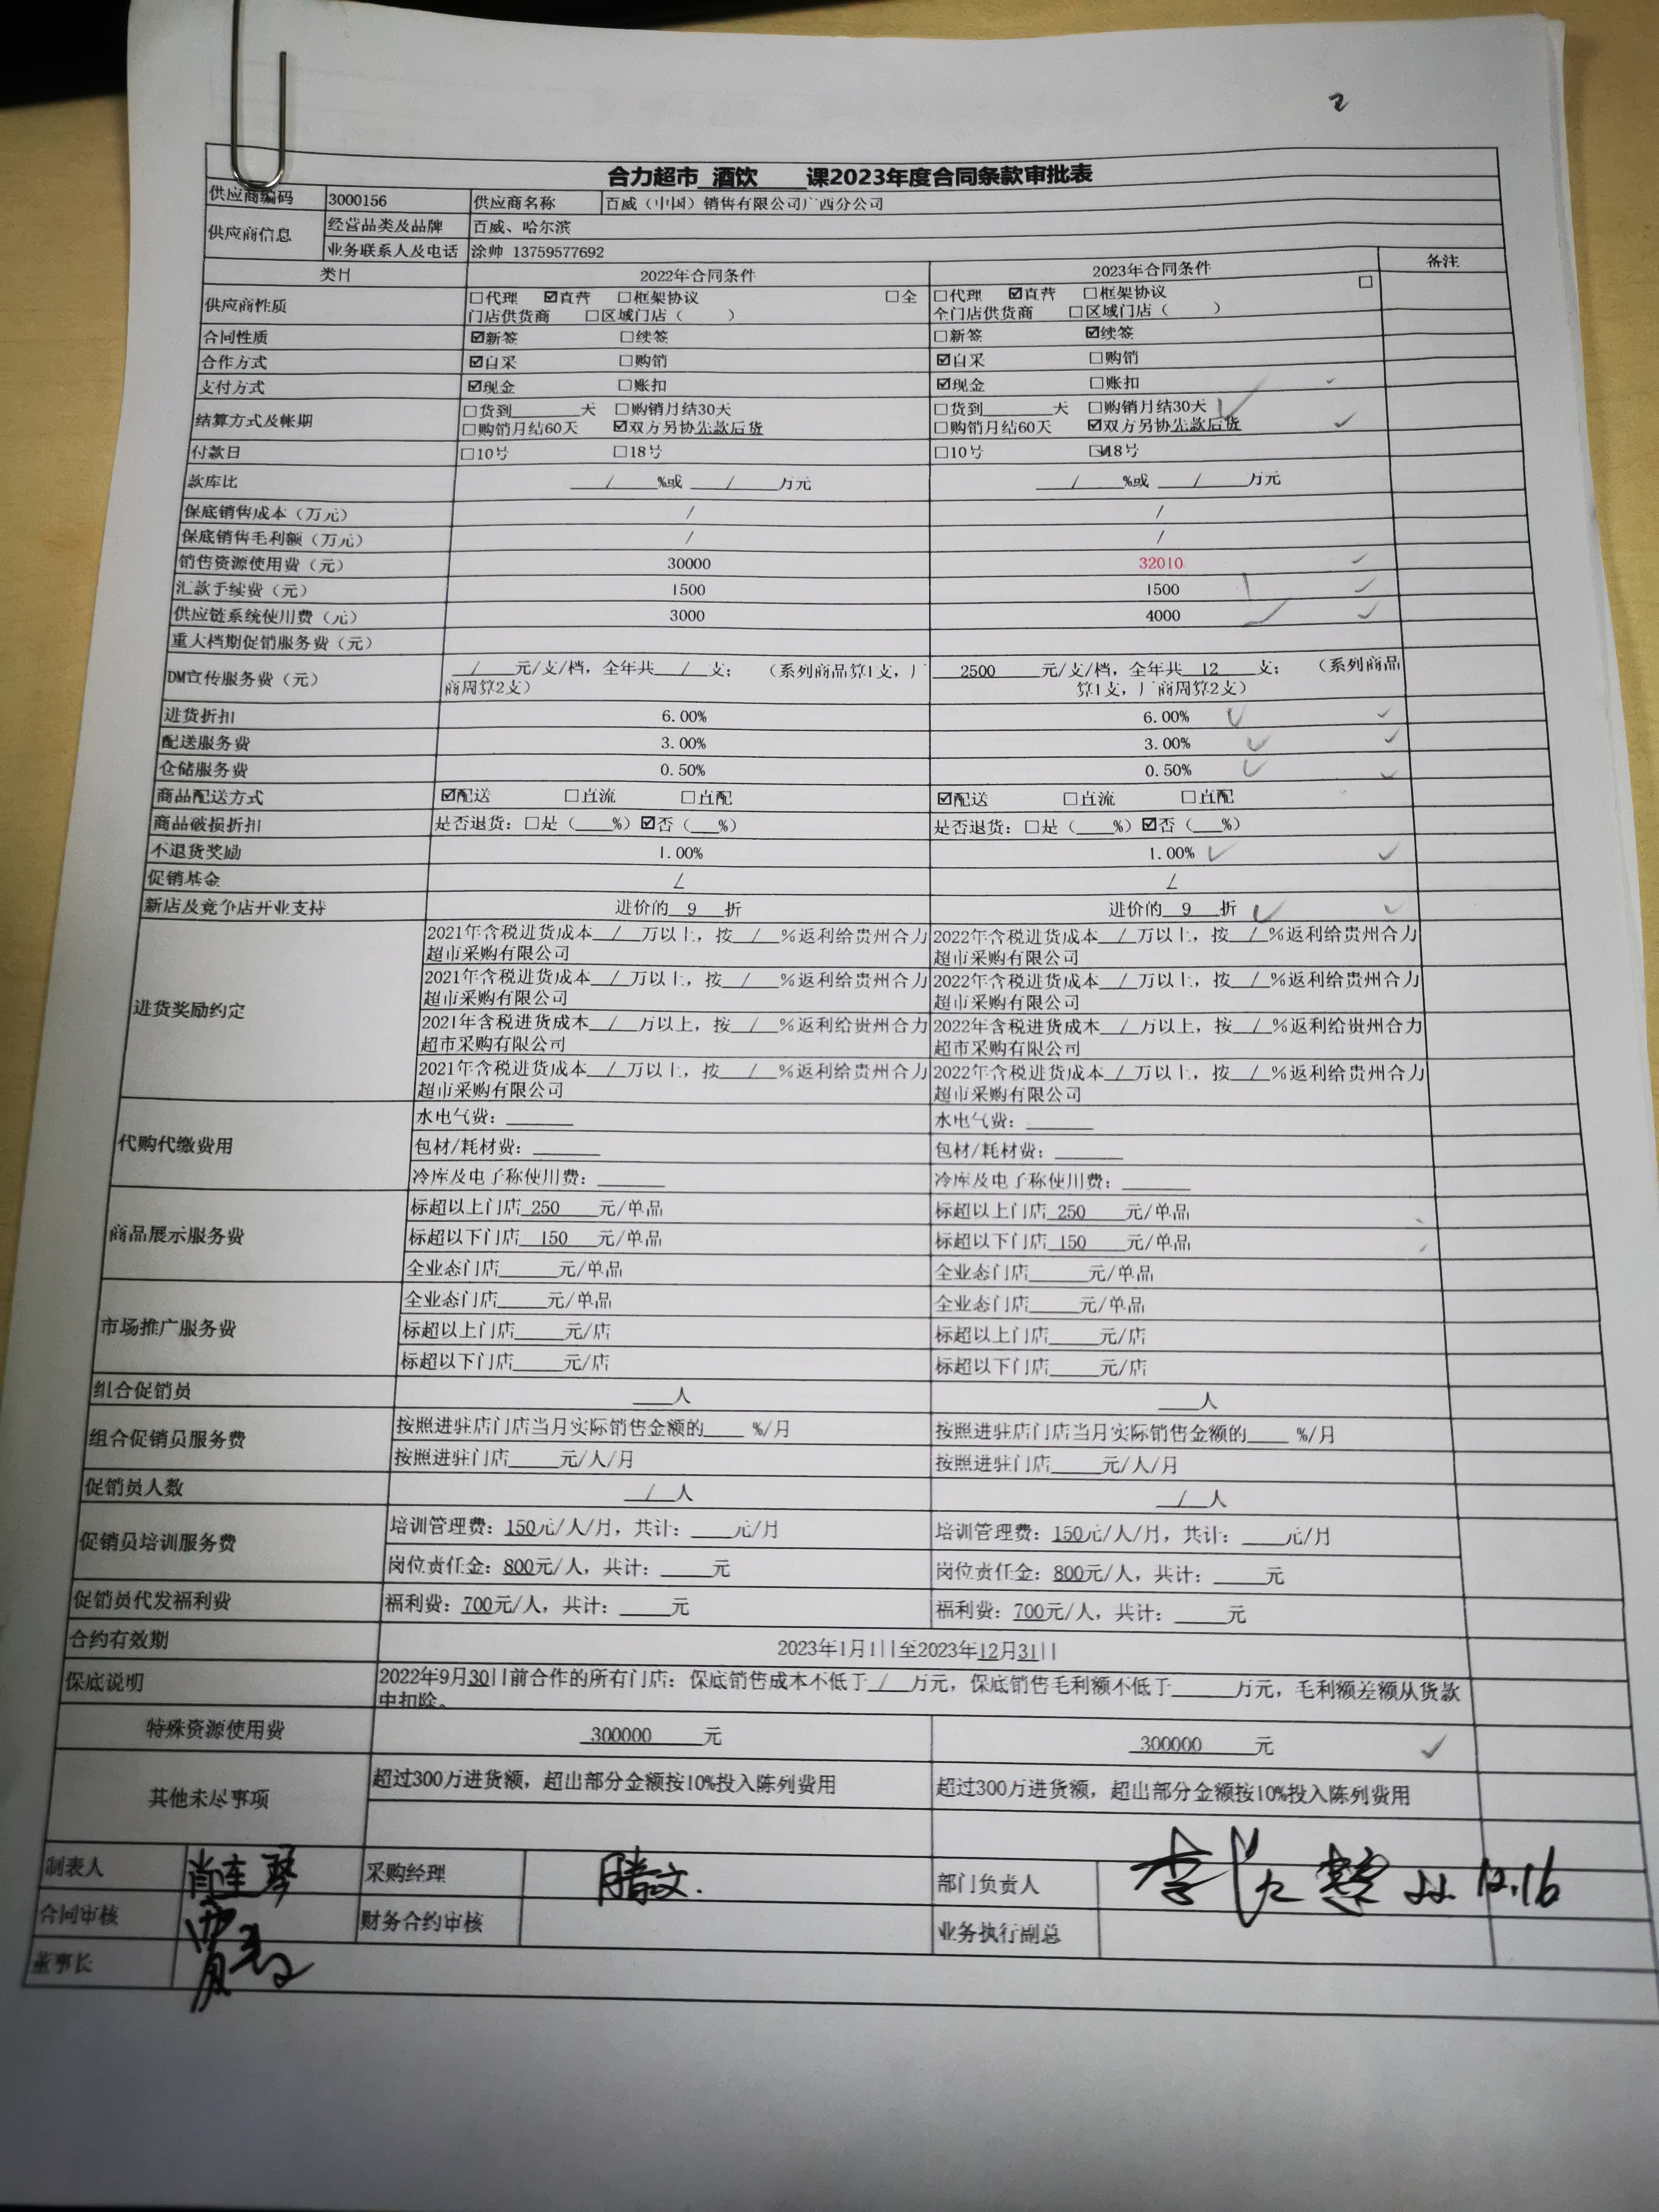 2
合力超市 酒饮 课2023年度合同条款审批表
供应商编码 3000156 供应商名称 百威（中国）销售有限公司广西分公司
供应商信息 经营品类及品牌 百威、哈尔滨
业务联系人及电话 涂帅 13759577692
类目 2022年合同条件 2023年合同条件 备注
供应商性质 □代理 ☑直营 □框架协议 □全 □代理 ☑直营 □框架协议 □
门店供货商 □区域门店（ ） 全门店供货商 □区域门店（ ）
合同性质 ☑新签 □续签 □新签 ☑续签
合作方式 ☑自采 □购销 ☑自采 □购销
支付方式 ☑现金 □账扣 ☑现金 □账扣
结算方式及帐期 □货到______天 □购销月结30天 □货到______天 □购销月结30天
□购销月结60天 ☑双方另协先款后货 □购销月结60天 ☑双方另协先款后货
付款日 □10号 □18号 □10号 ☑18号
款库比 __/__%或 __/__万元 __/__%或 __/__万元
保底销售成本（万元） / /
保底销售毛利额（万元） / /
销售资源使用费（元） 30000 32010
汇款手续费（元） 1500 1500
供应链系统使用费（元） 3000 4000
重大档期促销服务费（元）
DM宣传服务费（元） __/__元/支/档，全年共__/__支； （系列商品算1支，厂 2500 元/支/档，全年共 12 支； （系列商品
商周算2支） 算1支，厂商周算2支）
进货折扣 6.00% 6.00%
配送服务费 3.00% 3.00%
仓储服务费 0.50% 0.50%
商品配送方式 ☑配送 □直流 □直配 ☑配送 □直流 □直配
商品破损折扣 是否退货：□是（___%）☑否（___%） 是否退货：□是（___%）☑否（___%）
不退货奖励 1.00% 1.00%
促销基金 / /
新店及竞争店开业支持 进价的 9 折 进价的 9 折
进货奖励约定 2021年含税进货成本__/__万以上，按__/__%返利给贵州合力 2022年含税进货成本__/__万以上，按__/__%返利给贵州合力
超市采购有限公司 超市采购有限公司
2021年含税进货成本__/__万以上，按__/__%返利给贵州合力 2022年含税进货成本__/__万以上，按__/__%返利给贵州合力
超市采购有限公司 超市采购有限公司
2021年含税进货成本__/__万以上，按__/__%返利给贵州合力 2022年含税进货成本__/__万以上，按__/__%返利给贵州合力
超市采购有限公司 超市采购有限公司
2021年含税进货成本__/__万以上，按__/__%返利给贵州合力 2022年含税进货成本__/__万以上，按__/__%返利给贵州合力
超市采购有限公司 超市采购有限公司
代购代缴费用 水电气费：______ 水电气费：______
包材/耗材费：______ 包材/耗材费：______
冷库及电子称使用费：______ 冷库及电子称使用费：______
商品展示服务费 标超以上门店 250 元/单品 标超以上门店 250 元/单品
标超以下门店 150 元/单品 标超以下门店 150 元/单品
全业态门店_____元/单品 全业态门店_____元/单品
市场推广服务费 全业态门店_____元/单品 全业态门店_____元/单品
标超以上门店_____元/店 标超以上门店_____元/店
标超以下门店_____元/店 标超以下门店_____元/店
组合促销员 ____人 ____人
组合促销员服务费 按照进驻店门店当月实际销售金额的____ %/月 按照进驻店门店当月实际销售金额的____ %/月
按照进驻门店____元/人/月 按照进驻门店____元/人/月
促销员人数 __/__人 __/__人
促销员培训服务费 培训管理费：150元/人/月，共计：____元/月 培训管理费：150元/人/月，共计：____元/月
岗位责任金：800元/人，共计：_____元 岗位责任金：800元/人，共计：_____元
促销员代发福利费 福利费：700元/人，共计：____元 福利费：700元/人，共计：____元
合约有效期 2023年1月1日至2023年12月31日
保底说明 2022年9月30日前合作的所有门店：保底销售成本不低于__/__万元，保底销售毛利额不低于_____万元，毛利额差额从货款
中扣除。
特殊资源使用费 300000 元 300000 元
其他未尽事项 超过300万进货额，超出部分金额按10%投入陈列费用 超过300万进货额，超出部分金额按10%投入陈列费用
制表人 肖连琴 采购经理 部门负责人 22.12.16
合同审核 财务合约审核 业务执行副总
董事长